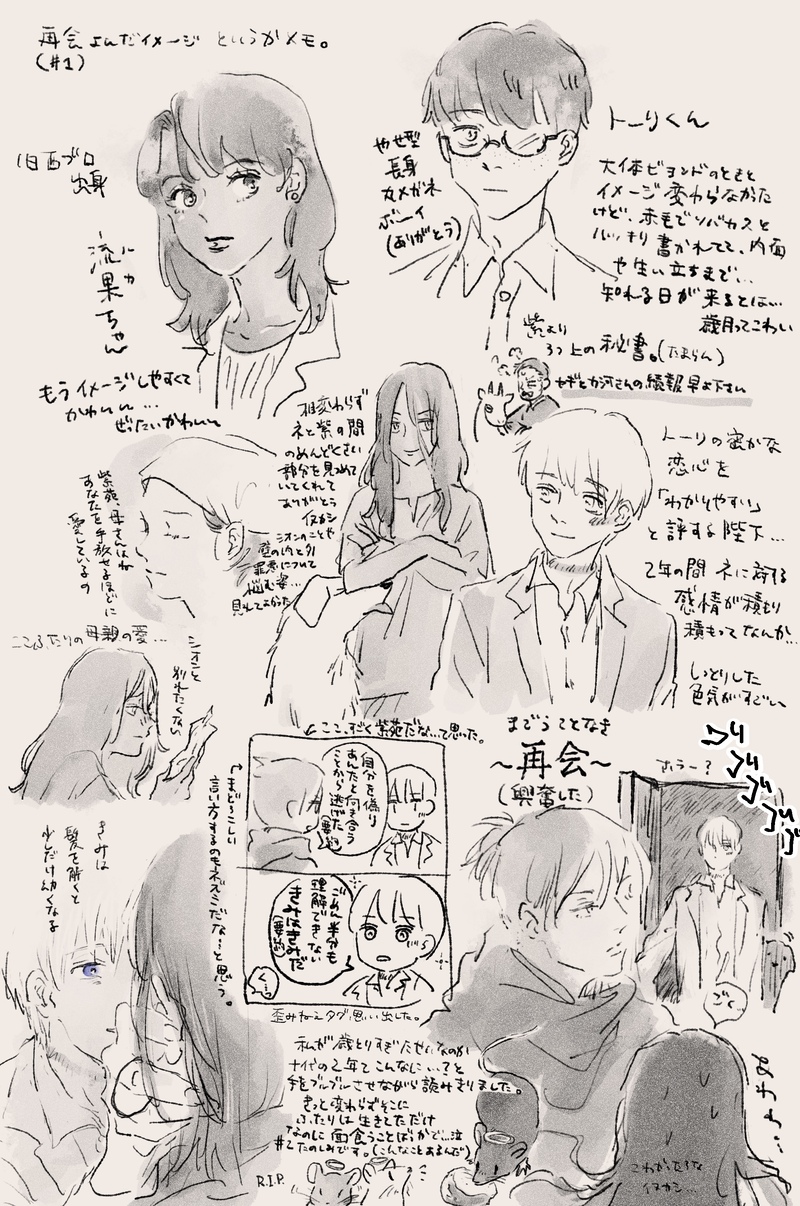 再会よんだイメージ というかメモ。
(#1)
旧西ブロ
出身
流果ちゃん
ルカ
もうイメージしやすくて
かわいい…
ぜったいかわいい
やせ型
長身
丸メガネ
ボーイ
(ありがとう)
トーリくん
大体ビヨンドのときと
イメージ変わらなかった
けど、赤毛でソバカスと
ハッキリ書かれてて、内面
や生い立ちまで…
知れる日が来るとは…
歳月ってこわい
紫より
3つ上の秘書。(たまらん)
ヤギとカ河さんの続報早よ下さい
相変わらず
ネと紫の間
のめんどくさい
部分を見つめて
いてくれて
ありがとう
イヌカシ
シオンのことや
壁の内と外
罪悪について
悩む姿…
見れてよかった
紫苑、母さんはね
あなたを手放せるほどに
愛しているの
ここふたりの母親の愛…
シオンと
別れたくない
トーリの密かな
恋心を
「わかりやすい」
と評する陛下…
2年の間 ネに対する
感情が積もり
積もってなんか…
しっとりした
色気がすごい
↙ここ、すごく紫苑だな…って思った。
自分を偽り
あんたと向き合う
ことから逃げた
(要約)
ごめん半分も
理解できない
きみはきみだ
(要約)
くっ…
↑まどろっこしい
言い方するのもネズミだな〜と思う。
歪みねぇタグ思い出した。
まごうことなき
〜再会〜
(興奮した)
ホラー?
ゴゴゴゴゴ
ごく…
きみは
髪を解くと
少しだけ幼くなる
私が歳とりすぎたせいなのか
十代の2年てこんなに…?と
手をブルブルさせながら読みきりました。
きっと変わらずそこに
ふたりは生きてただけ
なのに面食うことばっかで…泣
#2たのしみです。(こんなことあるんだ)
R.I.P.
こわかったろな
イヌカシ…